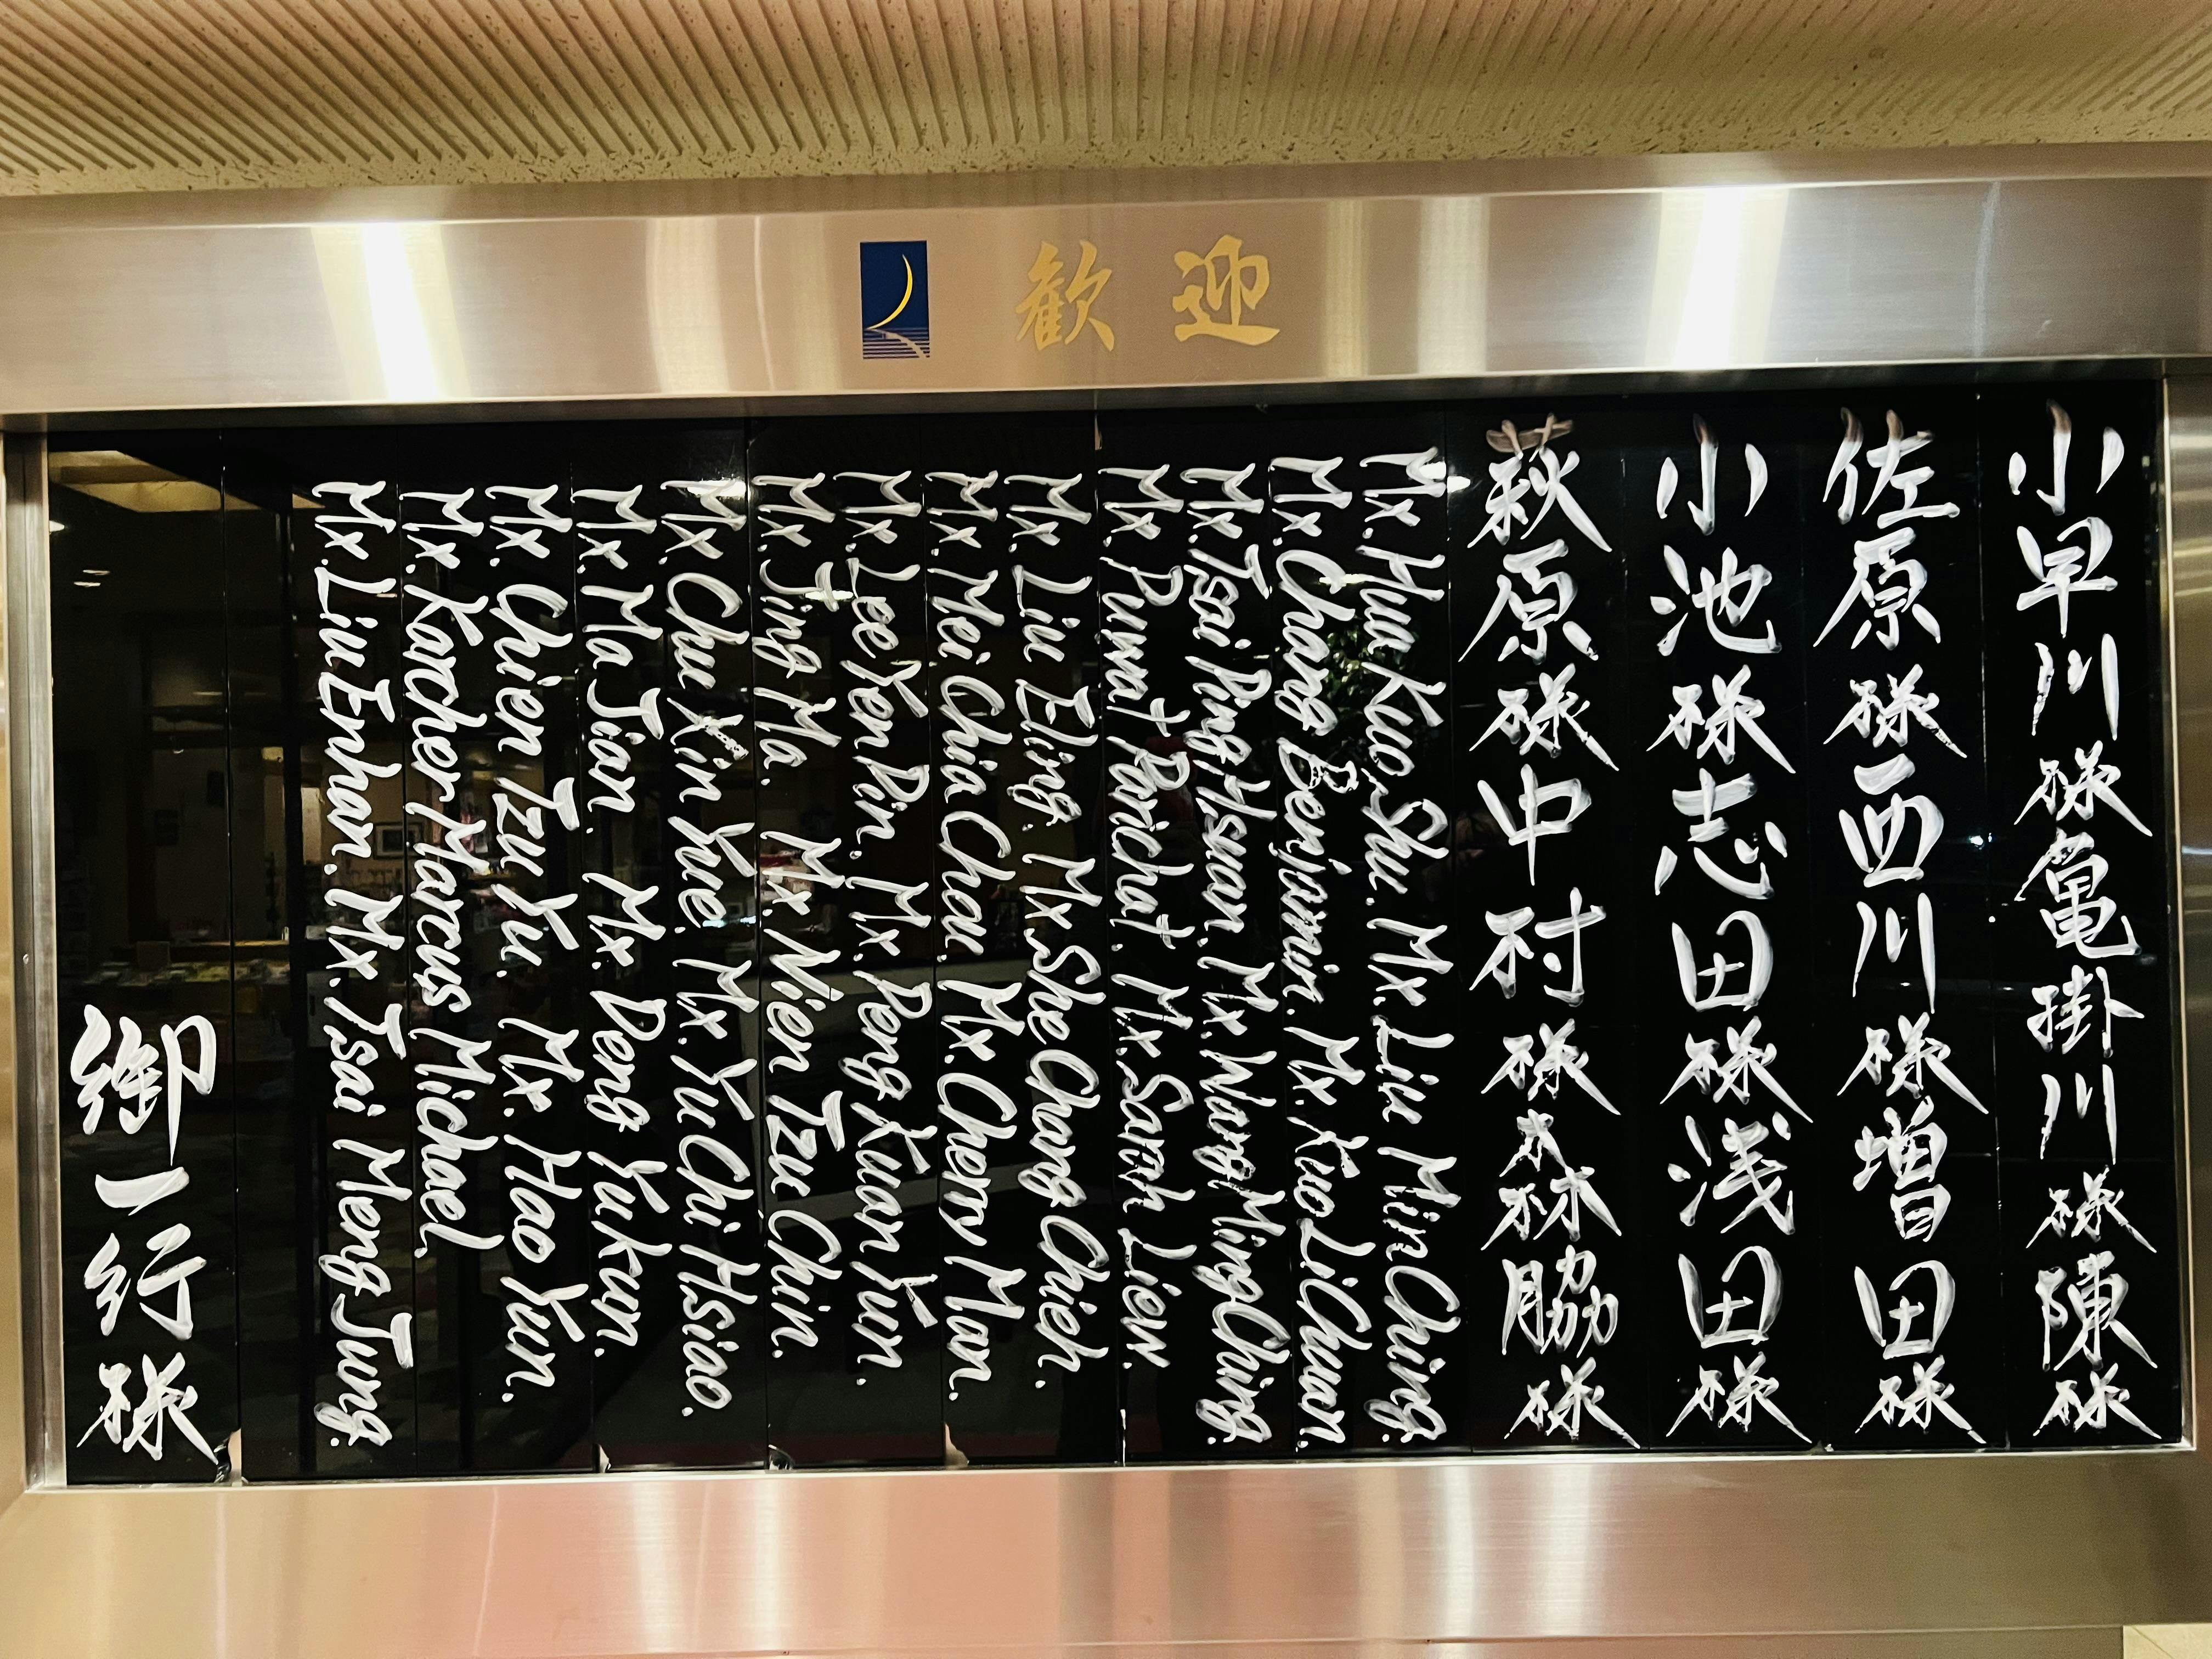 歓迎
小早川様亀掛川様陳様
佐原様西川様増田様
小池様志田様浅田様
萩原様中村様森脇様
Mx. Hua Kuo Shu. Mx. Liu Min Ching.
Mx. Chang Benjamin. Mx. Kuo Li Chuan.
Mx. Tsai Ping Hsuan. Mx. Wang Ming Ching.
Mx. Pumat Parichat. Mx. Sarah Liew.
Mx. Liu Eling. Mx. She Chang Chieh.
Mx. Mei Chia Chau. Mx. Cherry Man.
Mx. Lee Yen Pin. Mx. Peng Kuan Yun.
Mx. Jing Ma. Mx. Nien Tzu Chin.
Mx. Chu Xin Yue. Mx. Yu Chi Hsiao.
Mx. Ma Jian. Mx. Deng Yukun.
Mx. Chien Tzu Yu. Mx. Hao Yun.
Mx. Karcher Marcus Michael.
Mx. Liu Enhan. Mx. Tsai Meng Jung.
御一行様